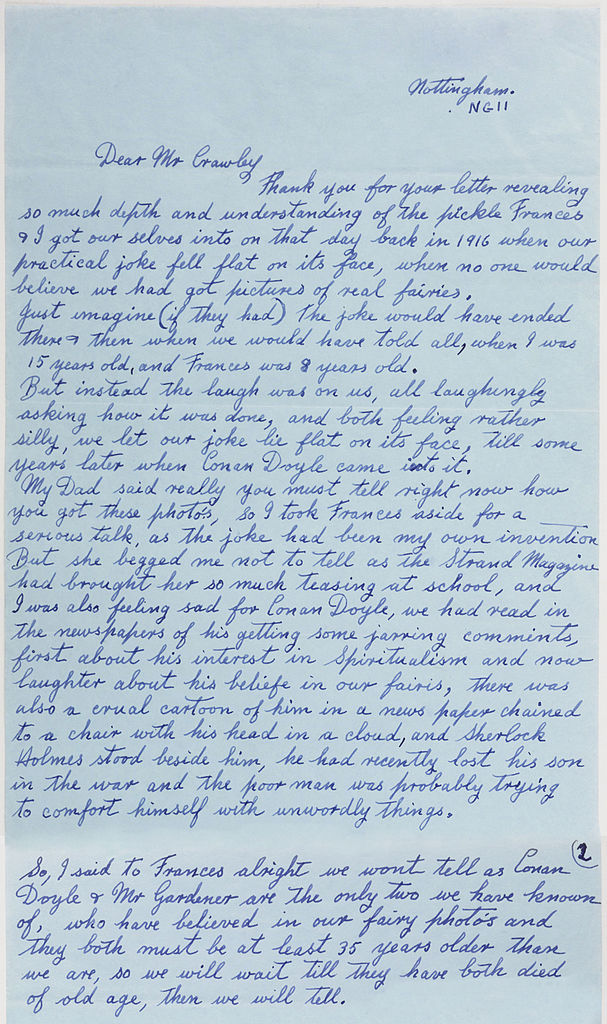 Nottingham.
. NG11
Dear Mr Crawley,
Thank you for your letter revealing
so much depth and understanding of the pickle Frances
& I got our selves into on that day back in 1916 when our
practical joke fell flat on its face, when no one would
believe we had got pictures of real fairies.
Just imagine (if they had) the joke would have ended
there & then when we would have told all, when I was
15 years old, and Frances was 8 years old.
But instead the laugh was on us, all laughingly
asking how it was done, and both feeling rather
silly, we let our joke lie flat on its face, till some
years later when Conan Doyle came into it.
My Dad said really you must tell right now how
you got these photo's, so I took Frances aside for a
serious talk, as the joke had been my own invention
But she begged me not to tell as the Strand Magazine
had brought her so much teasing at school, and
I was also feeling sad for Conan Doyle, we had read in
the newspapers of his getting some jarring comments,
first about his interest in Spiritualism and now
laughter about his beliefe in our fairis, there was
also a crual cartoon of him in a news paper chained
to a chair with his head in a cloud, and Sherlock
Holmes stood beside him, he had recently lost his son
in the war and the poor man was probably trying
to comfort himself with unwordly things.
2
So, I said to Frances alright we wont tell as Conan
Doyle & Mr Gardener are the only two we have known
of, who have believed in our fairy photo's and
they both must be at least 35 years older than
we are, so we will wait till they have both died
of old age, then we will tell.